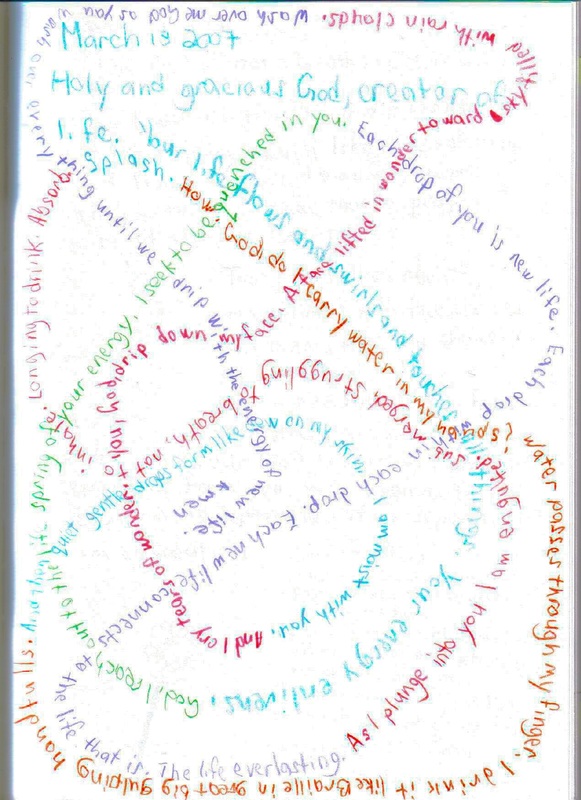 March 19 2007
Holy and gracious God, creator of
life. Your life flows and swirls and touches all things. Your energy enlivens.
God, I reach out to the life spring of your energy. I seek to be quenched in you.
Each drop of you is new life. Each drop within each drop. Each new life connects to the life that is. The life everlasting.
As I plunge into you I am engulfed. Submerged. Struggling to breath, not, inhale. Longing to drink. Absorb.
Splash. How, God, do I carry water in my hands? Water passes through my finger. I drink it like Braille in great big gulping handfulls.
And then quiet gentle drops form like dew on my skin. I am moist with you.
And I cry tears of wonder to you, God, drip down my face. A face lifted in wonder toward sky filled with rain clouds.
Wash over me God as you wash over everything until we drip with the energy of new life.
Amen